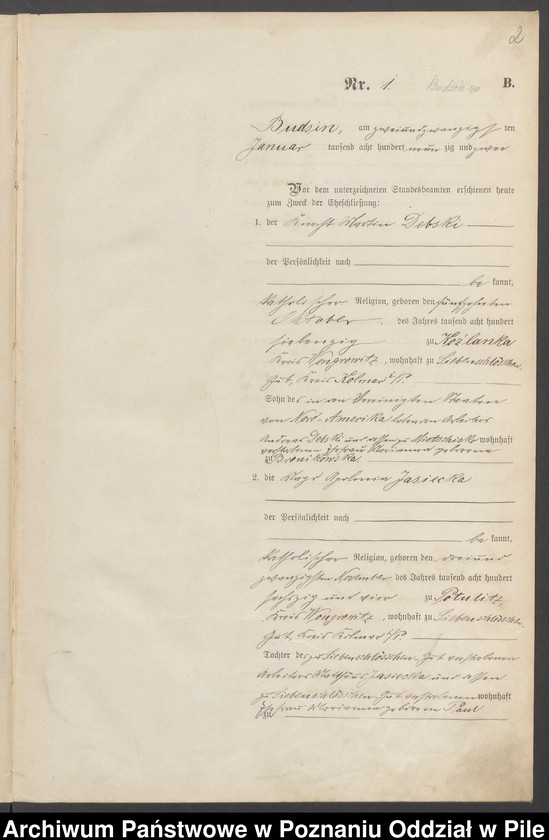 2
Nr. 1. Budsin B.
Budsin, am zweiundzwanzigsten
Januar tausend acht hundert neunzig und zwei
Vor dem unterzeichneten Standesbeamten erschienen heute
zum Zweck der Eheschließung:
1. der Knecht Martin Debski
der Persönlichkeit nach
be kannt,
katholischer Religion, geboren den fünfzehnten
Oktober des Jahres tausend acht hundert
siebenzig zu Kozlanka
Kreis Wongrowitz, wohnhaft zu Liebenschlößchen
Gut, Kreis Kolmar i/P.
Sohn des in den Vereinigten Staaten
von Nord-Amerika lebenden Arbeiters
Andreas Debski und dessen zu wohnhaft
verstorbenen Ehefrau Marianna geborene
zu Bronikowska
2. die Magd Apolonia Jasiecka
der Persönlichkeit nach
be kannt,
katholischer Religion, geboren den dreiund
zwanzigsten November des Jahres tausend acht hundert
sechszig und vier zu Potulitz,
Kreis Wongrowitz, wohnhaft zu Liebenschlößchen
Gut, Kreis Kolmar i/P.
Tochter des zu Liebenschlößchen Gut verstorbenen
Arbeiters Jasiecka und dessen
zu Liebenschlößchen Gut verstorbenen wohnhaft
Ehefrau Marianna geborene Paul
zu
Archiwum Państwowe w Poznaniu Oddział w Pile